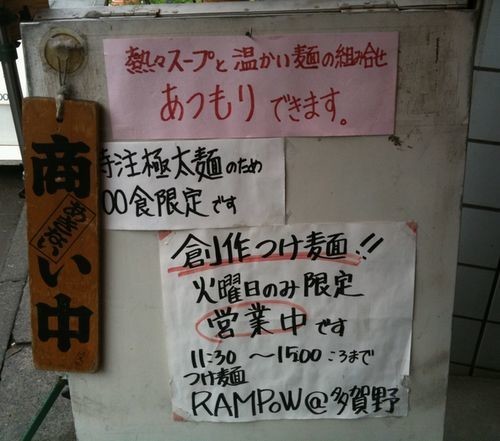 熱々スープと温かい麺の組み合せ
あつもりできます。
特注極太麺のため
00食限定です
商い中
創作つけ麺!!
火曜日のみ限定
営業中です
11:30 ～15:00 ころまで
つけ麺
RAMPoW@多賀野